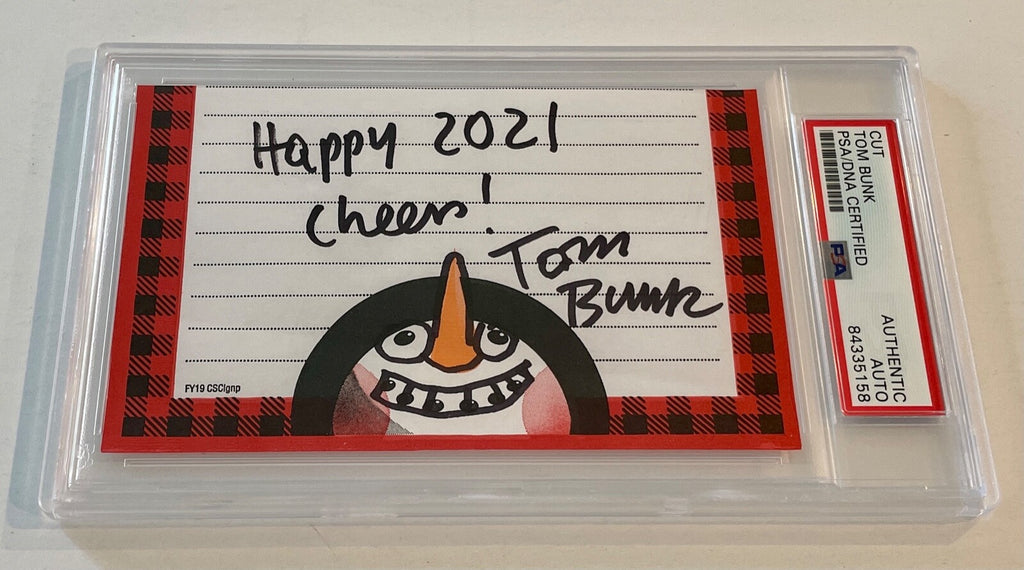 Happy 2021
Cheers!
Tom
Bunk
FY19 CSCIgnp
CUT
TOM BUNK
PSA/DNA CERTIFIED
PSA
AUTHENTIC
AUTO
84335158